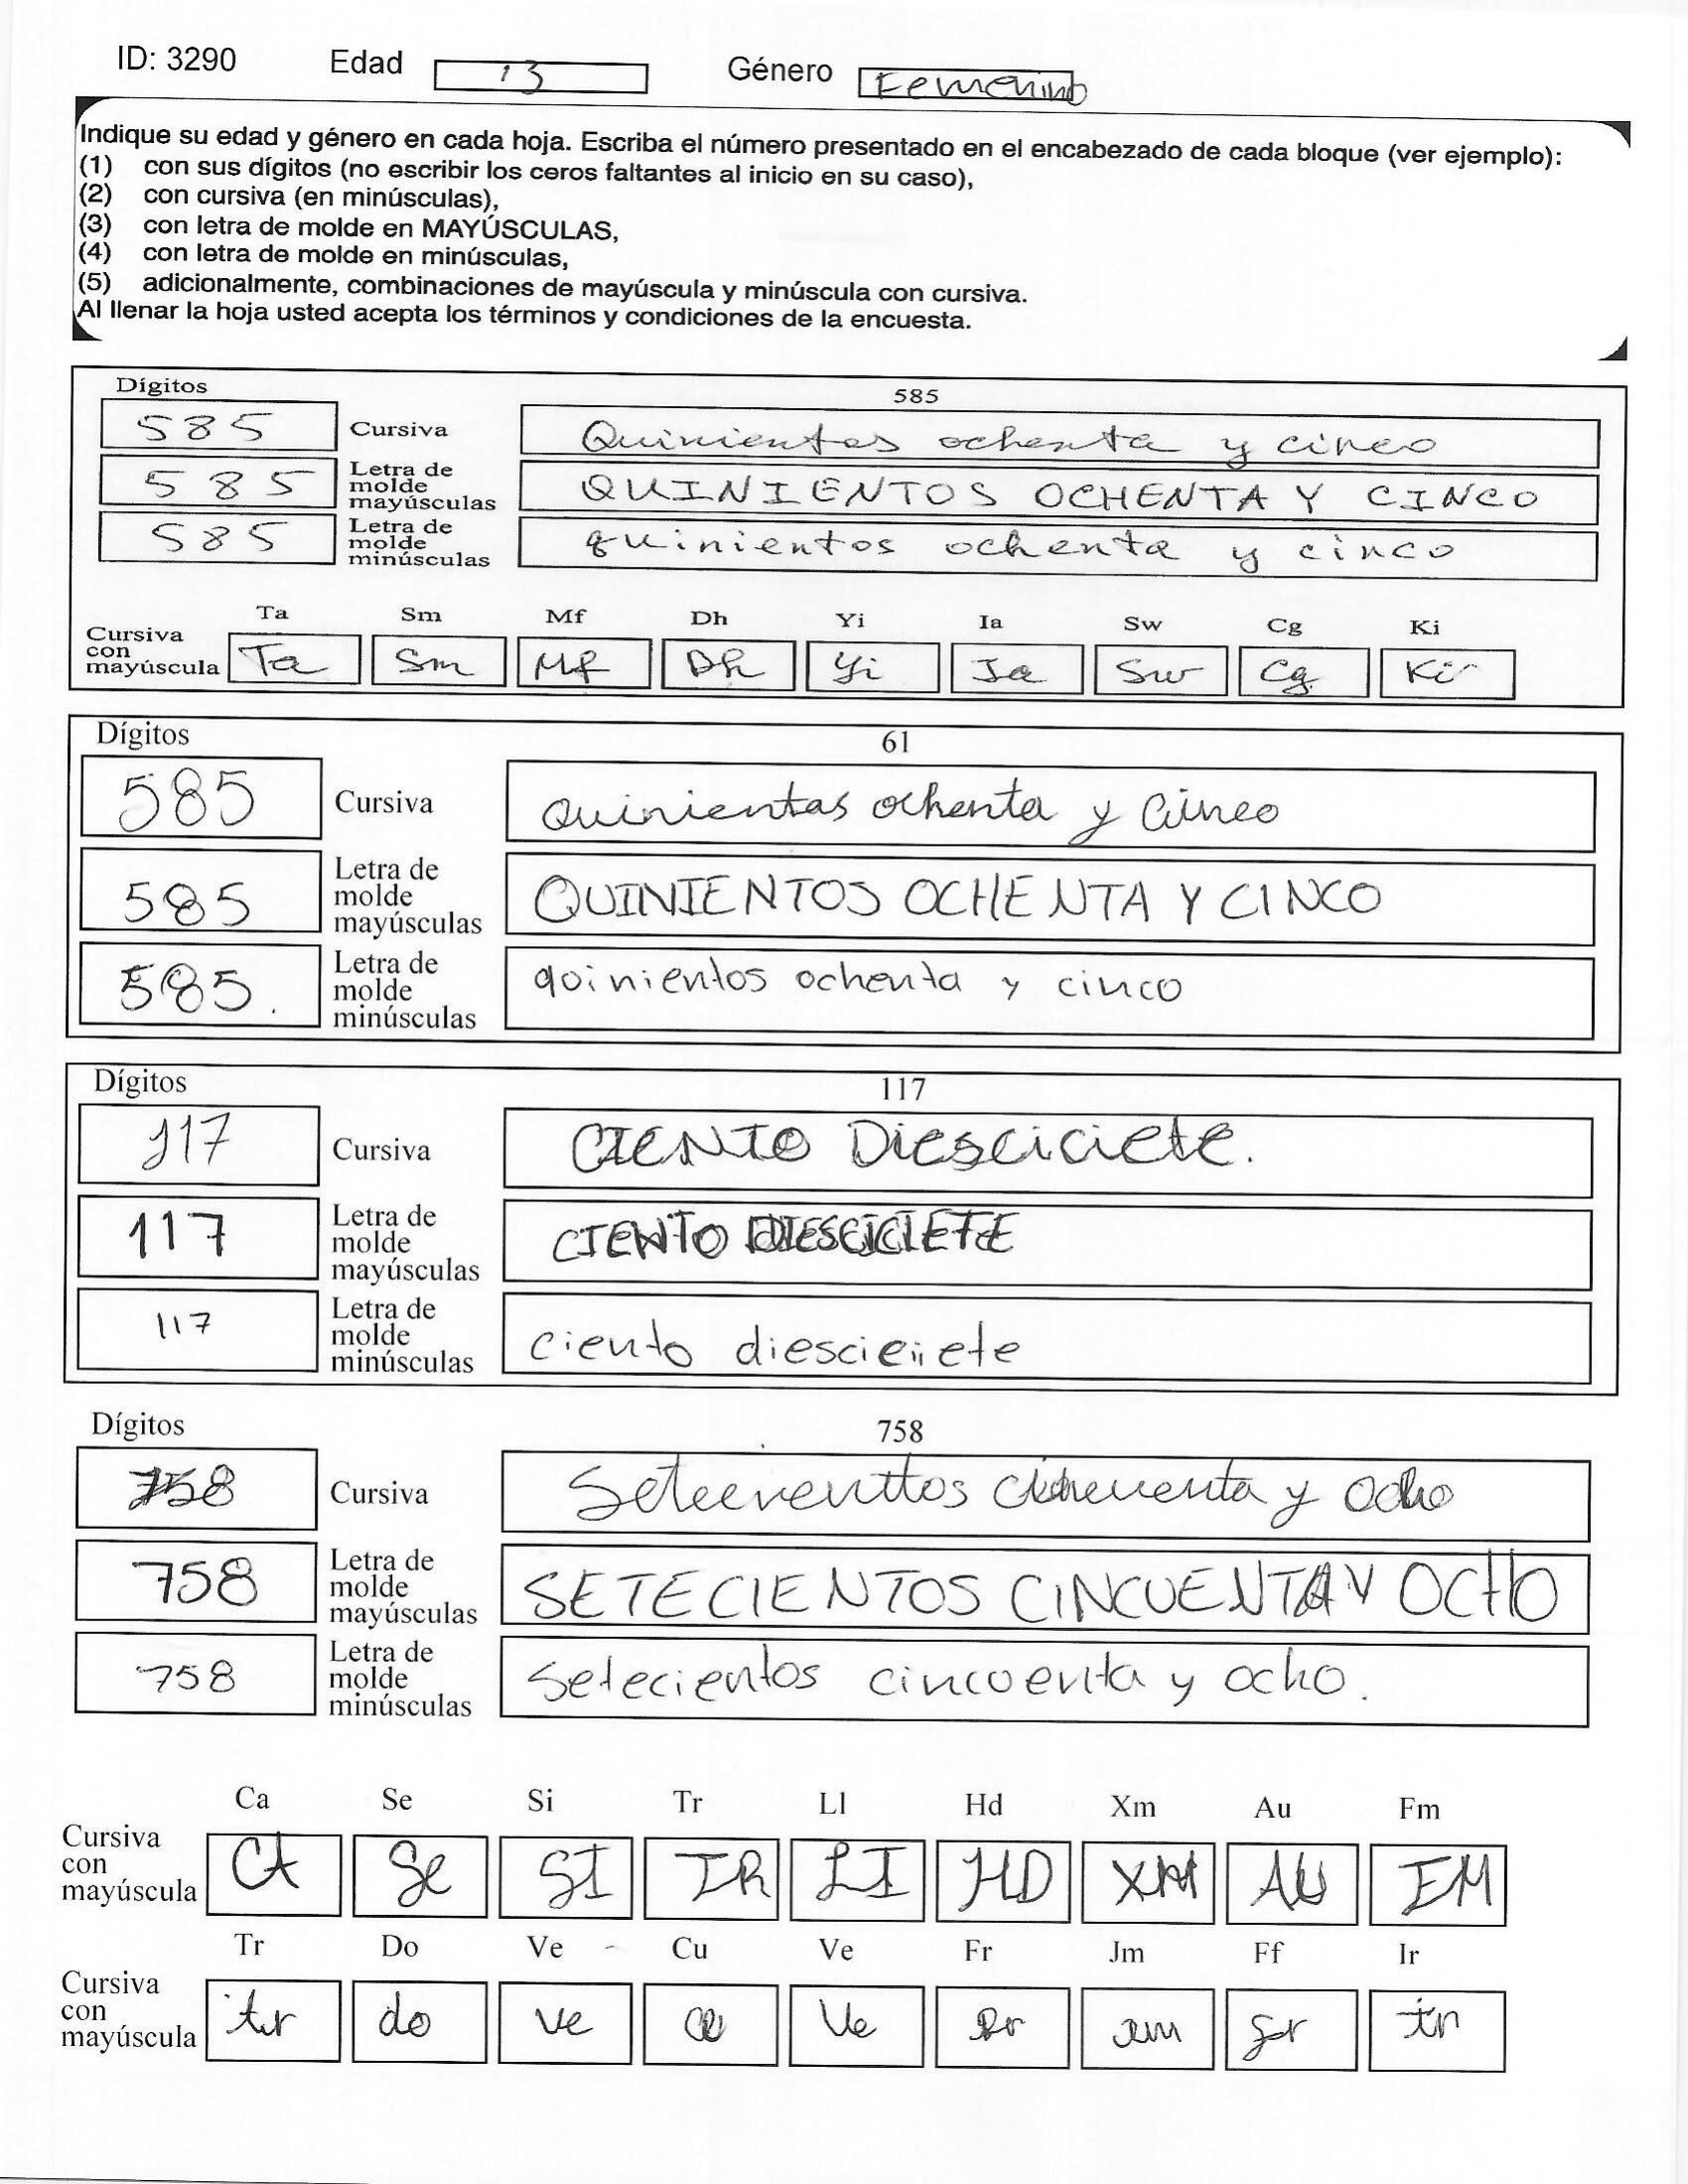 ID: 3290 Edad 13 Género Femenino
Indique su edad y género en cada hoja. Escriba el número presentado en el encabezado de cada bloque (ver ejemplo):
(1) con sus dígitos (no escribir los ceros faltantes al inicio en su caso),
(2) con cursiva (en minúsculas),
(3) con letra de molde en MAYÚSCULAS,
(4) con letra de molde en minúsculas,
(5) adicionalmente, combinaciones de mayúscula y minúscula con cursiva.
Al llenar la hoja usted acepta los términos y condiciones de la encuesta.
Dígitos 585
585 Cursiva Quinientos ochenta y cinco
585 Letra de molde mayúsculas QUINIENTOS OCHENTA Y CINCO
585 Letra de molde minúsculas quinientos ochenta y cinco
Ta Sm Mf Dh Yi Ia Sw Cg Ki
Cursiva con mayúscula Ta Sm Mf Dh Yi Ia Sw Cg Ki
Dígitos 61
585 Cursiva Quinientas ochenta y Cinco
585 Letra de molde mayúsculas QUINIENTOS OCHENTA Y CINCO
585. Letra de molde minúsculas qoinientos ochenta y cinco
Dígitos 117
117 Cursiva CIENTO Diesciciete.
117 Letra de molde mayúsculas CIENTO DIESCICIETE
117 Letra de molde minúsculas ciento
Dígitos 758
758 Cursiva y Ocho
758 Letra de molde mayúsculas SETECIENTOS CINCUENTA Y OCHO
758 Letra de molde minúsculas Setecientos cincoenta y ocho.
Ca Se Si Tr Ll Hd Xm Au Fm
Cursiva con mayúscula CA Se SI TR LI HD XM AU FM
Tr Do Ve Cu Ve Fr Jm Ff Ir
Cursiva con mayúscula tr do ve Ve